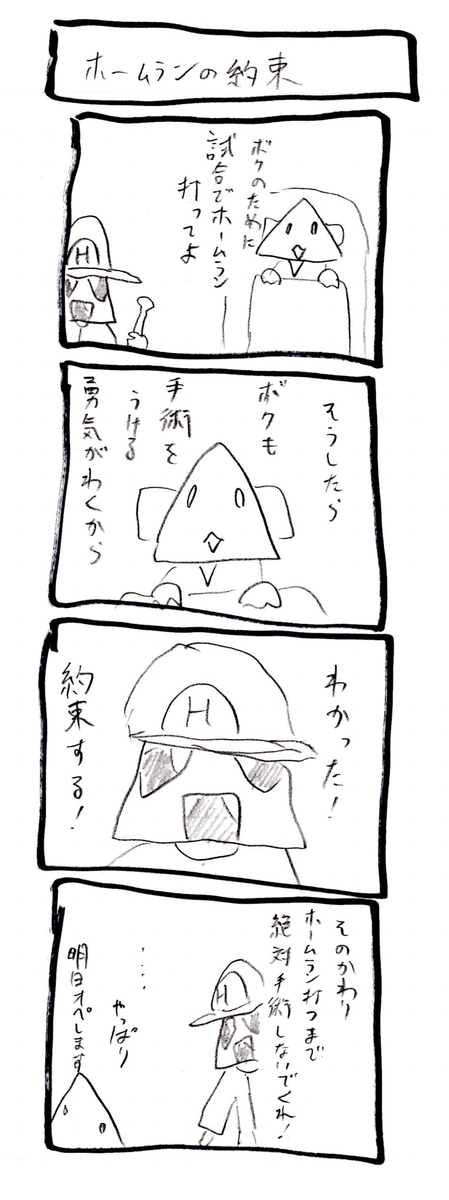 ホームランの約束
ボクのために
試合でホームラン
打ってよ
H
そうしたら
ボクも
手術を
うける
勇気がわくから
わかった!
H
約束する!
そのかわり
ホームラン打つまで
絶対手術しないでくれ!
H
....
やっぱり
明日オペします